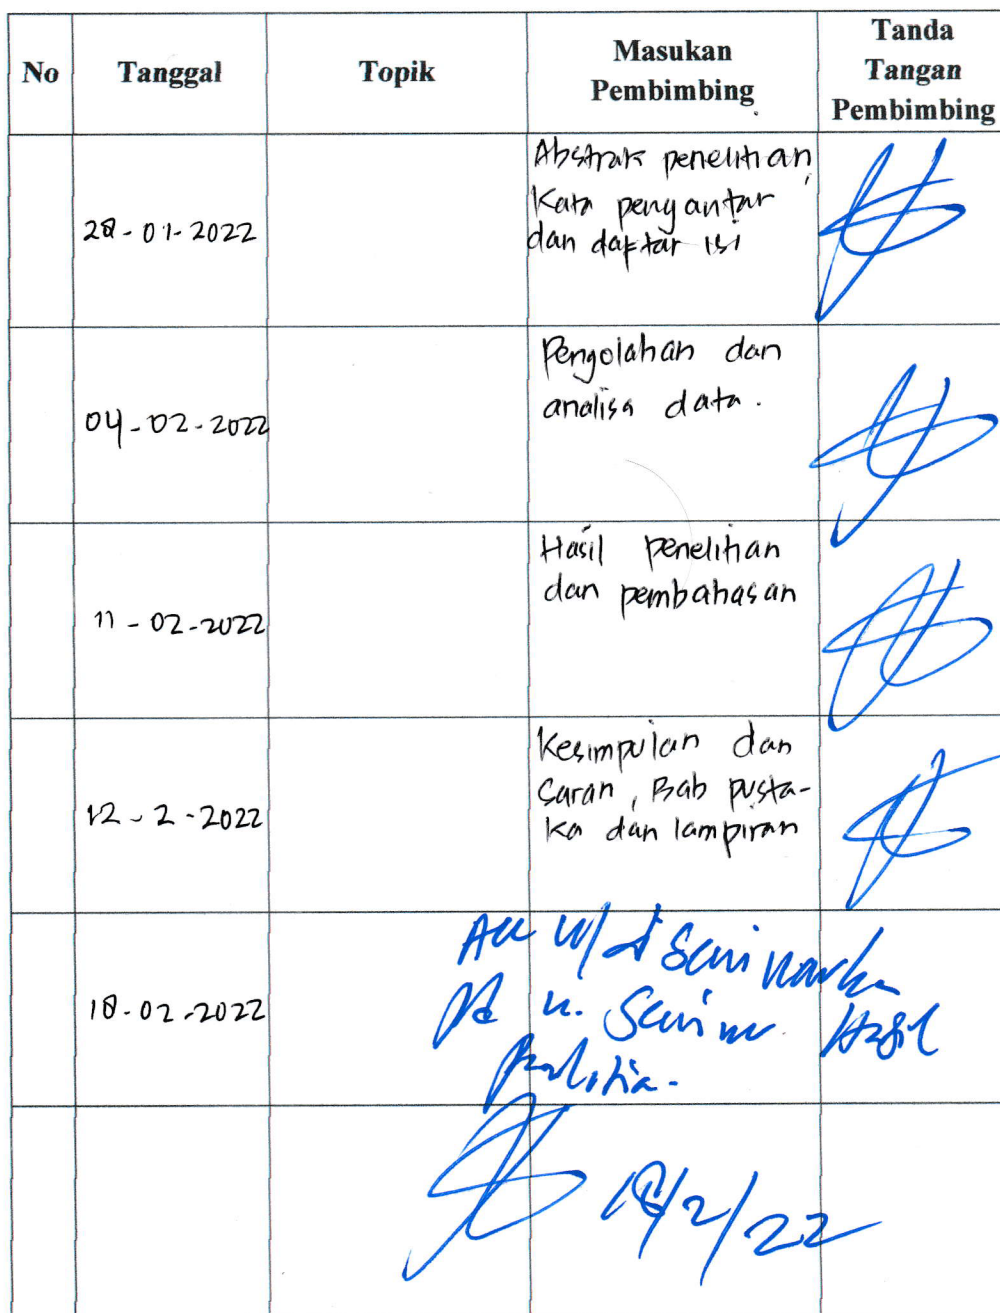 No Tanggal Topik Masukan Pembimbing Tanda Tangan Pembimbing
28-01-2022
Abstrak penelitian,
Kata pengantar
dan daftar isi
04-02-2022
Pengolahan dan
analisa data.
11-02-2022
Hasil penelitian
dan pembahasan
12-2-2022
Kesimpulan dan
Saran, Bab pusta-
ka dan lampiran
18-02-2022
Acc u/ di Seminarkan
Seminar Hasil
18/2/22